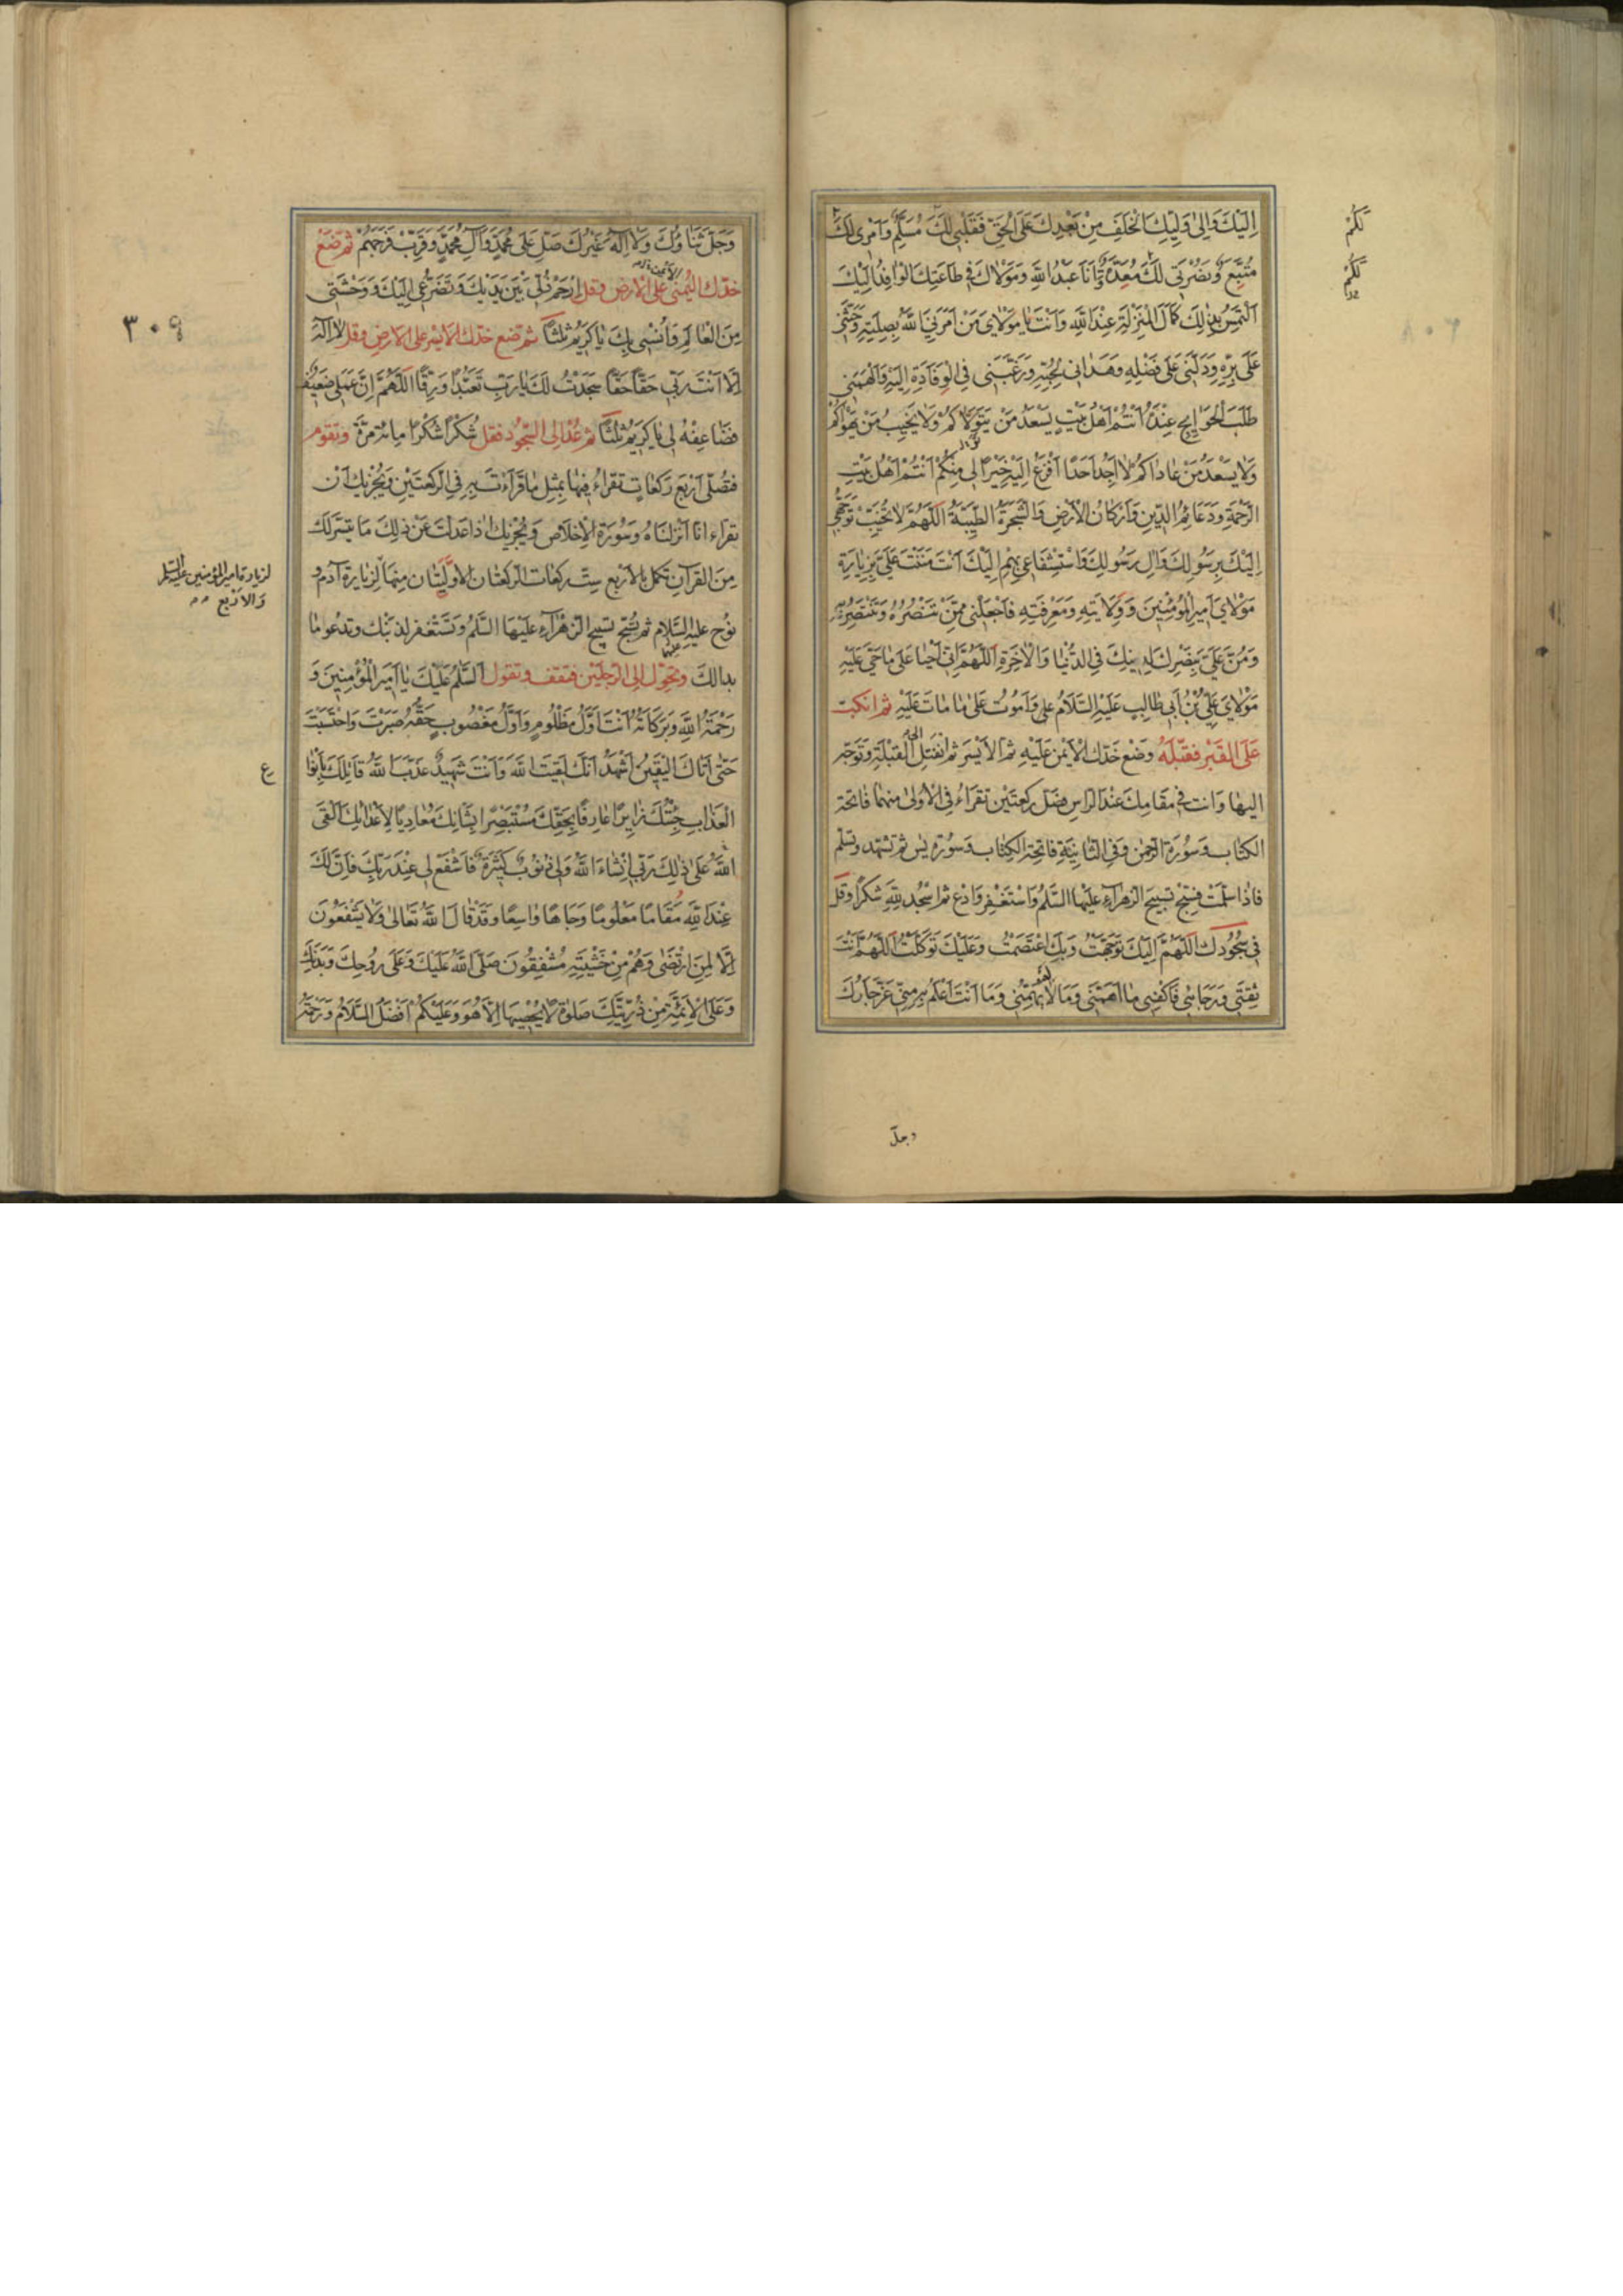 اِلَيْكَ وَاِلىٰ وَلِيِّكَ الْخَلَفِ مِنْ بَعْدِكَ عَلَى الْحَقِّ فَقَلْبِي لَكَ مُسَلِّمٌ وَاَمْرى لَكَ
مُتَّبِعٌ وَنُصْرَتِي لَكَ مُعَدَّةٌ وَاَنَا عَبْدُ اللهِ وَمَوْلَاكَ فِي طَاعَتِكَ الْوٰافِدُ اِلَيْكَ
اَلْتَمِسُ بِذٰلِكَ كَمَالَ الْمَنْزِلَةِ عِنْدَ اللهِ وَاَنْتَ يٰا مَوْلٰايَ مَنْ اَمَرَنِيَ اللهُ بِصِلَتِهِ وَحَثَّنِي
عَلىٰ بِرِّهِ وَدَلَّنِي عَلىٰ فَضْلِهِ وَهَدٰانِي لِحُبِّهِ وَرَغَّبَنِي فِي الْوِفَادَةِ اِلَيْهِ وَاَلْهَمَنِي
طَلَبَ الْحَوٰائِجِ عِنْدَهُ اَنْتُمْ اَهْلُ بَيْتٍ يَسْعَدُ مَنْ يَتَوَلّٰاكُمْ وَلَا يَخِيبُ مَنْ يَهْوٰاكُمْ
وَلَا يَسْعَدُ مَنْ عَادٰاكُمْ لٰا اَجِدُ اَحَدًا اَفْزَعُ اِلَيْهِ خَيْرًا لِي مِنْكُمْ اَنْتُمْ اَهْلُ بَيْتِ
الرَّحْمَةِ وَدَعَائِمُ الدِّينِ وَاَرْكَانُ الْاَرْضِ وَالشَّجَرَةُ الطَّيِّبَةُ اَللّٰهُمَّ لَا تُخَيِّبْ تَوَجُّهِي
اِلَيْكَ بِرَسُولِكَ وَاٰلِ رَسُولِكَ وَاسْتِشْفَاعِي بِهِمْ اِلَيْكَ اَنْتَ مَنَنْتَ عَلَيَّ بِزِيٰارَةِ
مَوْلٰايَ اَمِيرِ الْمُؤْمِنِينَ وَوِلَايَتِهِ وَمَعْرِفَتِهِ فَاجْعَلْنِي مِمَّنْ تَنْصُرُهُ وَتَنْتَصِرُ بِهِ
وَمُنَّ عَلَيَّ بِنَصْرِكَ لِدِينِكَ فِي الدُّنْيٰا وَالْاٰخِرَةِ اَللّٰهُمَّ اِنِّي اَحْيٰا عَلىٰ مٰا حَيِيَ عَلَيْهِ
مَوْلٰايَ عَلِيُّ بْنُ اَبِي طَالِبٍ عَلَيْهِ السَّلَامُ وَاَمُوتُ عَلىٰ مٰا مٰاتَ عَلَيْهِ ثم انكبّ
عَلَى القَبْرِ فَقَبِّلْهُ وَضَعْ خَدَّكَ الْاَيْمَنَ عَلَيْهِ ثم الْاَيْسَرَ ثم انْفَتِلْ اِلَى القِبْلَةِ وَتَوَجَّه
اليهٰا وَانت فِي مَقَامِكَ عِنْدَ الرَّاسِ فصَلِّ رَكعَتَيْن تَقرَاءُ فِي الْاُولىٰ منهمٰا فٰاتحة
الكتاب وَسُورَة الرَّحمٰن وَفِي الثّٰانِيَةِ فاتحة الكِتٰاب وَسُورَة يٰس ثم تَشَهَّد وتسلم
فاذا سَلَّمْتَ فسَبِّحْ تسبيح الزهرٰاءِ عليها السَّلمُ وَاسْتَغْفِر وَادْعُ ثم اسْجُد للهِ شكرًا وقل
فِي سُجُودِك اَللّٰهُمَّ اِلَيْكَ تَوَجَّهْتُ وَبِكَ اعْتَصَمْتُ وَعَلَيْكَ تَوَكَّلْتُ اَللّٰهُمَّ اَنْتَ
ثِقَتِي وَرَجَائِي فَاكْفِنِي مٰا اَهَمَّنِي وَمَا لَا يُهِمُّنِي وَمَا اَنْتَ اَعْلَمُ بِهِ مِنِّي عَزَّ جَارُكَ
لَكُمْ
لَكُمْ
وجلّ
وَجَلَّ ثَنَاؤُكَ وَلَا اِلٰهَ غَيْرُكَ صَلِّ عَلىٰ مُحَمَّدٍ وَاٰلِ مُحَمَّدٍ وَقَرِّبْ فَرَجَهُمْ ثم ضَعْ
خدّك اليُمْنىٰ على الْاَرضِ وقل اِرْحَمْ ذُلِّي بَيْنَ يَدَيْكَ وَتَضَرُّعِي اِلَيْكَ وَوَحْشَتِي
مِنَ الْعٰالَمِ وَاُنْسِي بِكَ يٰا كَرِيمُ ثلثًا ثم تضع خدّك الايسر على الارضِ وقل لٰا اِلٰهَ
اِلّٰا اَنْتَ رَبِّي حَقًّا حَقًّا سَجَدْتُ لَكَ يٰا رَبِّ تَعَبُّدًا وَرِقًّا اَللّٰهُمَّ اِنَّ عَمَلِي ضَعِيفٌ
فَضَاعِفْهُ لِي يٰا كَرِيمُ ثلثًا ثم عُدْ الى السّجُود فقل شُكْرًا شُكْرًا مِائة مَرَّة وَتقوم
فتُصَلّي اَرْبَعَ رَكعٰاتٍ تقرَاءُ فِيهٰا بمثِل مٰا قَرَأتَ بِهِ فِي الرَّكعَتَيْنِ وَيُجْزِيك اَنْ
تقرَاء انّا اَنْزَلنَاهُ وَسُورَة الْاِخلَاص وَيُجْزِيك اِذٰا عَدَلتَ عَنْ ذٰلِكَ مَا تَيَسَّرَ لكَ
مِنَ القرآنِ تكمل بالاربَع سِتّ رَكعات الرّكعتٰان الاوّلَتٰان مِنهَا لِزِيٰارَة آدم و
نُوح عليه السَّلام ثم تُسَبِّح تسبيح الزّهْرَآءِ عَلَيْهَا السَّلمُ وَتَسْتَغفر لِذنبك وتدعو مٰا
بدا لكَ وَتحَوَّل الى الرِّجلَيْن فتقف وتقول اَلسَّلمُ عَلَيْكَ يٰا اَمِيرَ الْمُؤْمِنِينَ وَ
رَحْمَةُ اللهِ وَبَرَكَاتُهُ اَنْتَ اَوَّلُ مَظْلُومٍ وَاَوَّلُ مَغْصُوبٍ حَقُّهُ صَبَرْتَ وَاحْتَسَبْتَ
حَتّىٰ اَتَاكَ الْيَقِينُ اَشْهَدُ اَنَّكَ لَقِيتَ اللهَ وَاَنْتَ شَهِيدٌ عَذَّبَ اللهُ قَاتِلَكَ بِاَنْوٰاعِ
الْعَذٰابِ جِئْتُكَ زٰائِرًا عَارِفًا بِحَقِّكَ مُسْتَبْصِرًا بِشَانِكَ مُعَادِيًا لِاَعْدٰائِكَ اَلْقىٰ
اللهَ عَلىٰ ذٰلِكَ رَبِّي اِنْشٰاءَ اللهُ وَلِي ذُنُوبٌ كَثِيرَةٌ فَاشْفَعْ لِي عِنْدَ رَبِّكَ فَاِنَّ لَكَ
عِنْدَ اللهِ مَقَامًا مَعْلُومًا وَجَاهًا وٰاسِعًا وَقَدْ قٰالَ اللهُ تَعَالىٰ وَلَا يَشْفَعُونَ
اِلّٰا لِمَنِ ارْتَضىٰ وَهُمْ مِنْ خَشْيَتِهِ مُشْفِقُونَ صَلَّى اللهُ عَلَيْكَ وَعَلىٰ رُوحِكَ وَبَدَنِكَ
وَعَلَى الْاَئِمَّةِ مِنْ ذُرِّيَّتِكَ صَلٰوةً لٰا يُحْصِيهَا اِلّٰا هُوَ وَعَلَيْكُمْ اَفْضَلُ السَّلَامُ وَرَحْمَةُ
٣٠٩
لزيارة امير المؤمنين عليه السلم
والاربع
ع